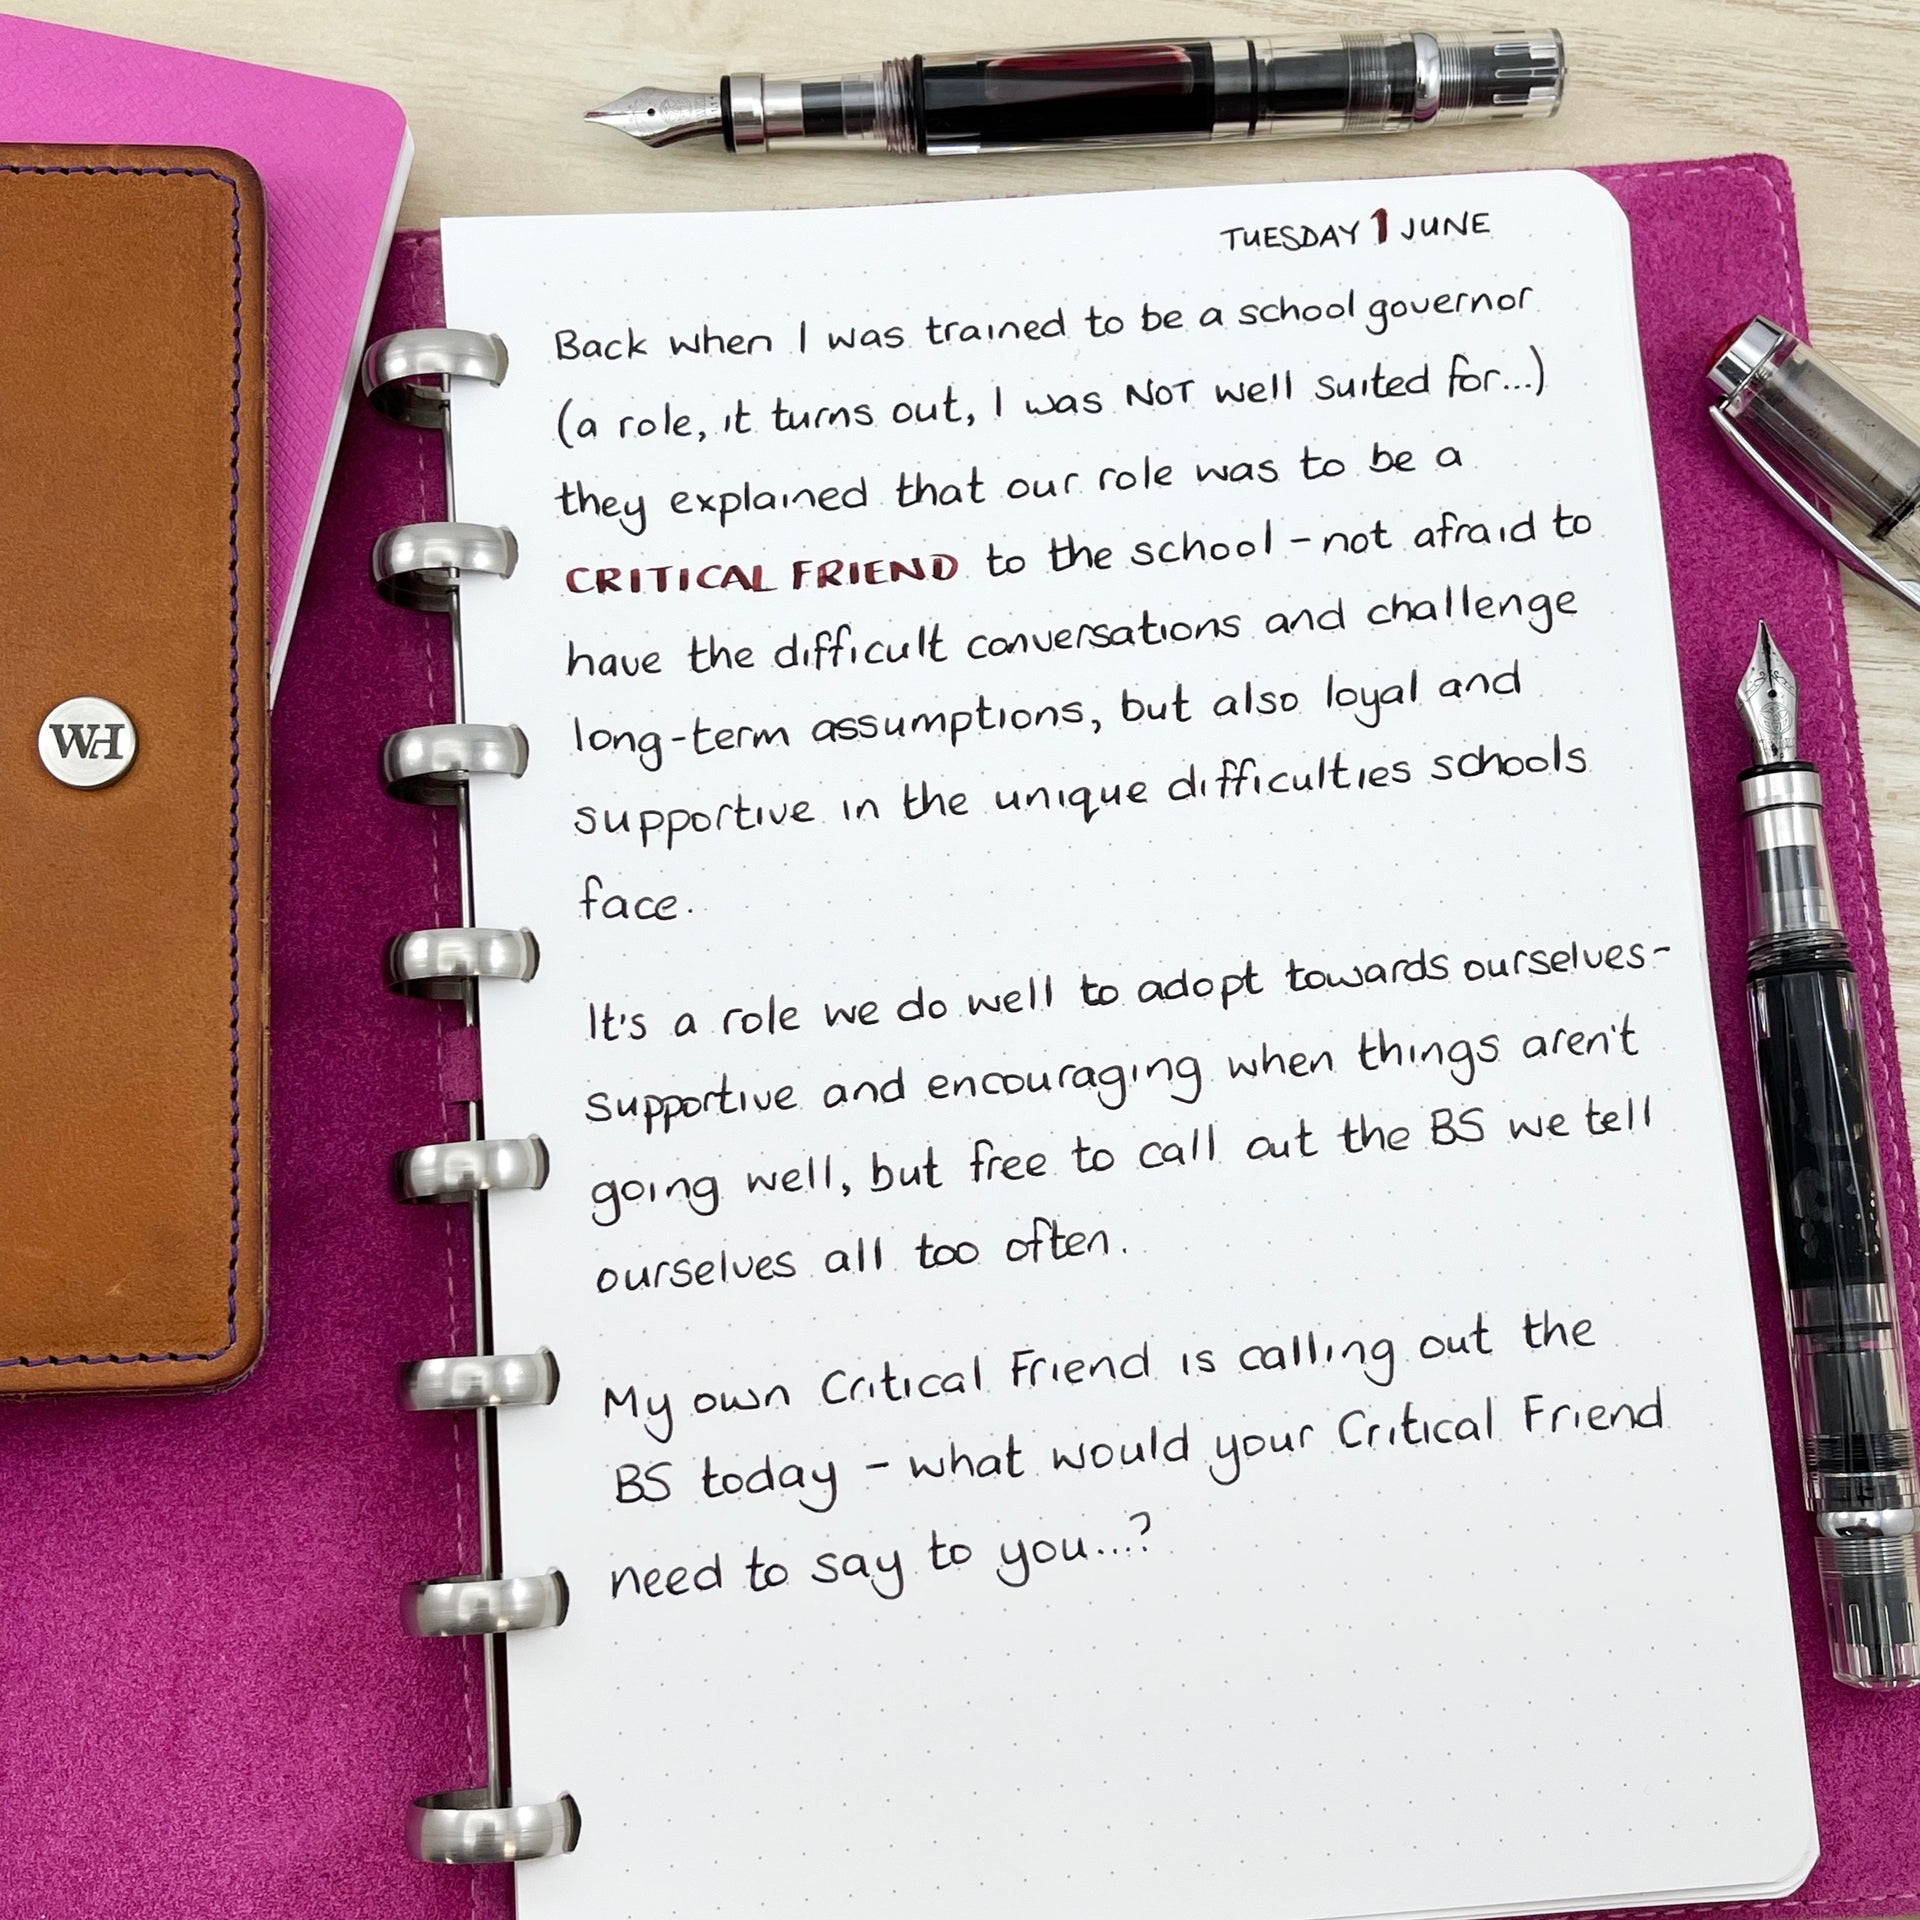 TUESDAY 1 JUNE
Back when I was trained to be a school governor
(a role, it turns out, I was NOT well suited for...)
they explained that our role was to be a
CRITICAL FRIEND to the school - not afraid to
have the difficult conversations and challenge
long-term assumptions, but also loyal and
supportive in the unique difficulties schools
face.
It's a role we do well to adopt towards ourselves -
supportive and encouraging when things aren't
going well, but free to call out the BS we tell
ourselves all too often.
My own Critical Friend is calling out the
BS today - what would your Critical Friend
need to say to you...?
WH